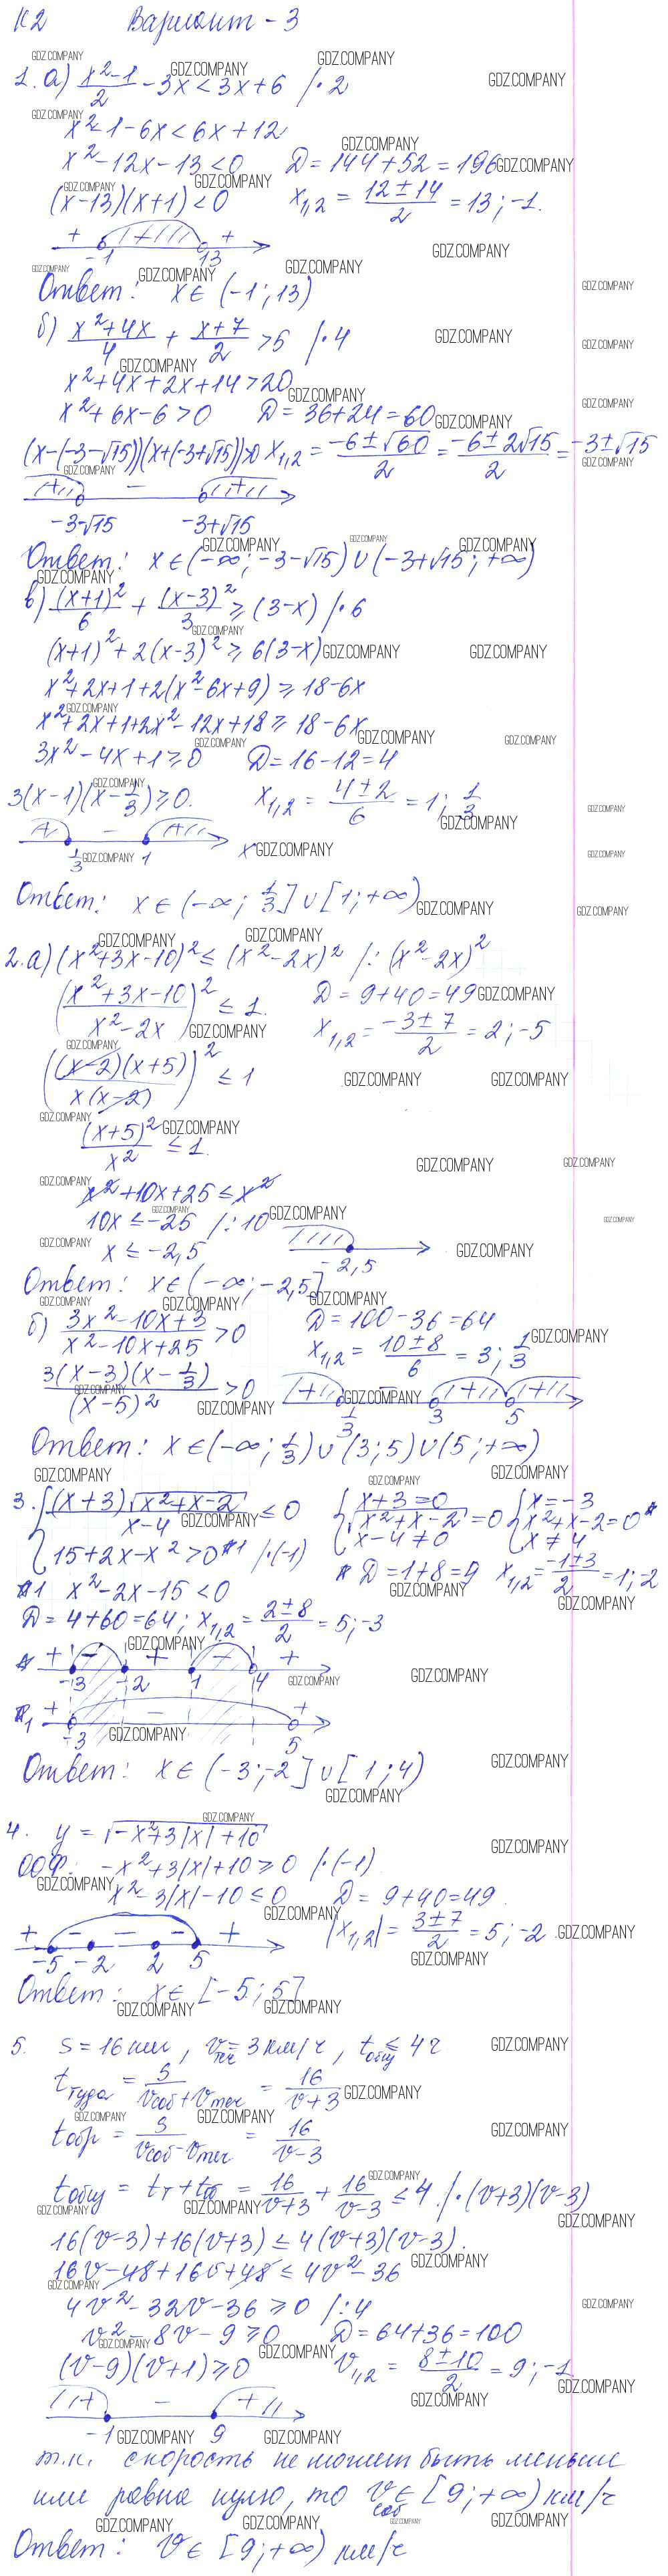 К2 Вариант - 3
1. а) (x²-1)/2 - 3x < 3x+6 /·2
x²-1-6x<6x+12
x²-12x-13<0 D=144+52=196
(x-13)(x+1)<0 x₁,₂ = (12±14)/2 = 13; -1.
+ + +
-1 13
Ответ: x∈(-1; 13)
б) (x²+4x)/4 + (x+7)/2 > 5 /·4
x²+4x+2x+14>20
x²+6x-6>0 D=36+24=60
(x-(-3-√15))(x+(-3+√15))>0 x₁,₂ = (-6±√60)/2 = (-6±2√15)/2 = -3±√15
+ - +
-3-√15 -3+√15
Ответ: x∈(-∞; -3-√15)∪(-3+√15; +∞)
в) (x+1)²/6 + (x-3)²/3 ≥ (3-x) /·6
(x+1)²+2(x-3)² ≥ 6(3-x)
x²+2x+1+2(x²-6x+9) ≥ 18-6x
x²+2x+1+2x²-12x+18 ≥ 18-6x
3x²-4x+1≥0 D=16-12=4
3(x-1)(x-1/3)≥0. x₁,₂ = (4±2)/6 = 1; 1/3
+ - +
1/3 1 x
Ответ: x∈(-∞; 1/3]∪[1; +∞)
2. а) (x²+3x-10)² ≤ (x²-2x)² /: (x²-2x)²
((x²+3x-10)/(x²-2x))² ≤ 1. D=9+40=49
x₁,₂ = (-3±7)/2 = 2; -5
((x-2)(x+5)/(x(x-2)))² ≤ 1
(x+5)²/x² ≤ 1.
x²+10x+25 ≤ x²
10x ≤ -25 /:10
x ≤ -2,5 -2,5
Ответ: x∈(-∞; -2,5]
б) (3x²-10x+3)/(x²-10x+25) > 0 D=100-36=64
x₁,₂ = (10±8)/6 = 3; 1/3
3(x-3)(x-1/3)/(x-5)² > 0 + - + +
1/3 3 5
Ответ: x∈(-∞; 1/3)∪(3; 5)∪(5; +∞)
3. { (x+3)√(x²+x-2)/(x-4) ≤ 0 { x+3=0 { x=-3
√(x²+x-2)=0 x²+x-2=0*
x-4≠0 x≠4
15+2x-x²>0 *1 /·(-1) * D=1+8=9 x₁,₂ = (-1±3)/2 = 1; -2
*1 x²-2x-15<0
D=4+60=64; x₁,₂ = (2±8)/2 = 5; -3
* + - + - +
-3 -2 1 4
*1 + - +
-3 5
Ответ: x∈(-3; -2]∪[1; 4)
4. y=√(-x²+3|x|+10)
ООФ: -x²+3|x|+10≥0 /·(-1)
x²-3|x|-10≤0 D=9+40=49.
|x₁,₂| = (3±7)/2 = 5; -2.
+ - - - +
-5 -2 2 5
Ответ: x∈[-5; 5]
5. S=16 км, vтеч=3 км/ч, tобщ≤4 ч
tтуда = S/(vсоб+vтеч) = 16/(v+3)
tобр = S/(vсоб-vтеч) = 16/(v-3)
tобщ = tт+tо = 16/(v+3) + 16/(v-3) ≤ 4. /·(v+3)(v-3)
16(v-3)+16(v+3) ≤ 4(v+3)(v-3).
16v-48+16v+48 ≤ 4v²-36
4v²-32v-36≥0 /:4
v²-8v-9≥0 D=64+36=100
(v-9)(v+1)≥0 v₁,₂ = (8±10)/2 = 9; -1
+ - +
-1 9
т.к. скорость не может быть меньше
или равна нулю, то vсоб∈[9; +∞) км/ч
Ответ: v∈[9; +∞) км/ч
GDZ.COMPANY